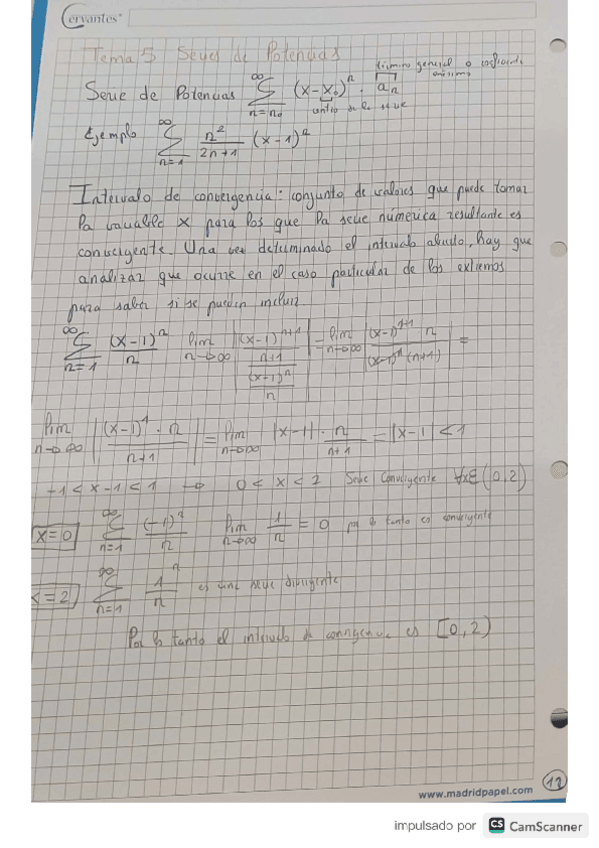 Cervantes
Tema 5 Series de Potencias
Serie de Potencias ∞ Σ n=n₀ (x-x₀)ⁿ · aₙ
término general o coeficiente
centro de la serie
Ejemplo ∞ Σ n=1 n²/(2n+1) (x-1)ⁿ
Intervalo de convergencia: conjunto de valores que puede tomar
la variable x para los que la serie númerica resultante es
convergente. Una vez determinado el intervalo abierto, hay que
analizar que ocurre en el caso particular de los extremos
para saber si se pueden incluir.
∞ Σ n=1 (x-1)ⁿ/n lim n→∞ |((x-1)ⁿ⁺¹/(n+1))/((x-1)ⁿ/n)| = lim n→∞ |(x-1)ⁿ⁺¹ n/((x-1)ⁿ(n+1))| =
lim n→∞ |(x-1)¹ · n/(n+1)| = lim n→∞ |x-1| · n/(n+1) = |x-1| < 1
-1 < x-1 < 1 → 0 < x < 2 Serie Convergente ∀x∈(0,2)
x=0 ∞ Σ n=1 (-1)ⁿ/n lim n→∞ 1/n = 0 por lo tanto es convergente
x=2 ∞ Σ n=1 1ⁿ/n es una serie divergente
Por lo tanto el intervalo de convergencia es [0,2)
12
www.madridpapel.com
impulsado por CS CamScanner